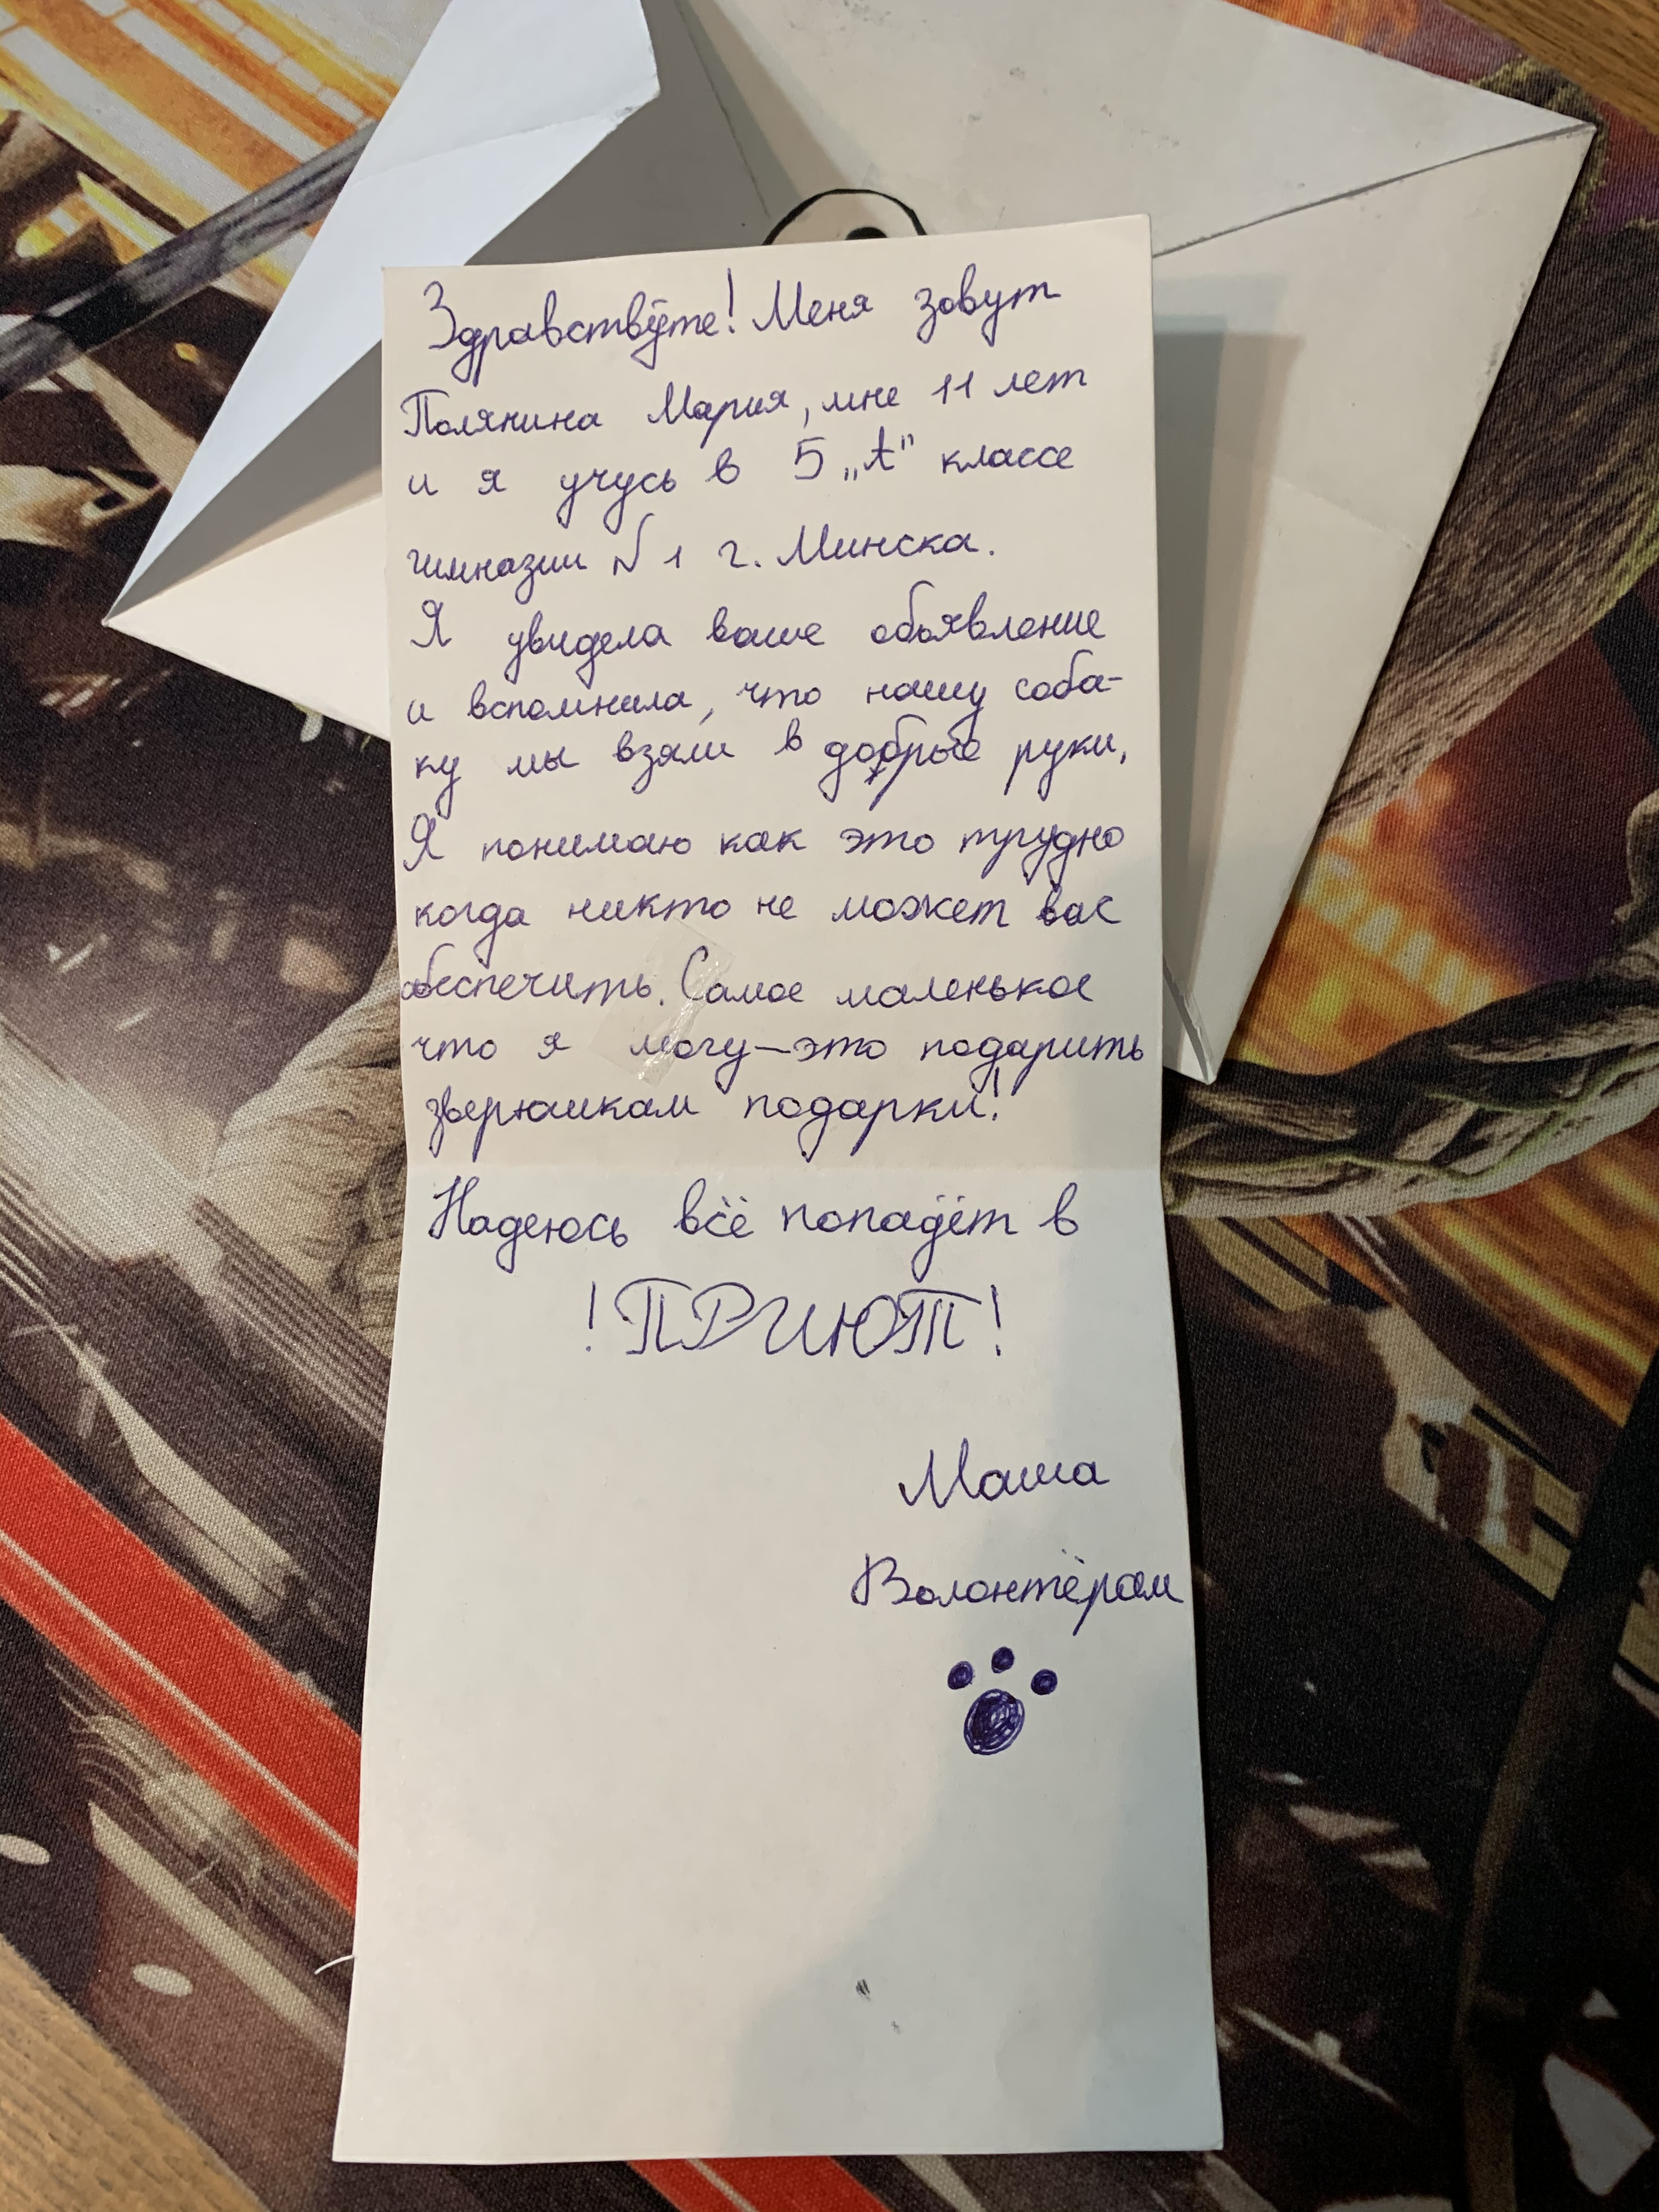 Здравствуйте! Меня зовут
Полянина Мария, мне 11 лет
и я учусь в 5 „А" классе
гимназии №1 г. Минска.
Я увидела ваше обьявление
и вспомнила, что нашу соба-
ку мы взяли в добрые руки,
Я понимаю как это трудно
когда никто не может вас
обеспечить. Самое маленькое
что я могу—это подарить
зверюшкам подарки!
Надеюсь всё попадёт в
!ПРИЮТ!
Маша
Волонтёрам